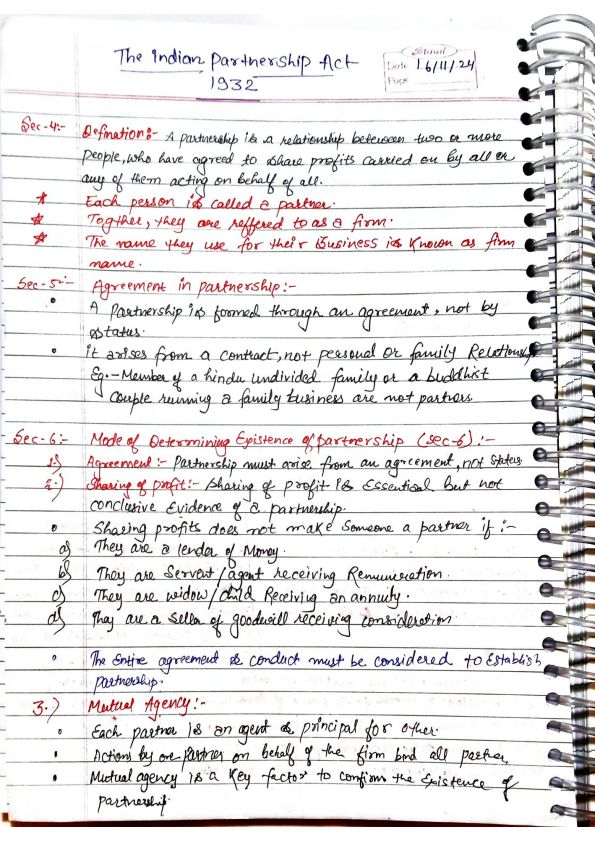 The Indian Partnership Act
1932
Date 16/11/24
Page
Sec-4:- Defination:- A partnership is a relationship between two or more
people, who have agreed to share profits carried on by all or
any of them acting on behalf of all.
* Each person is called a partner.
* Togther, they are reffered to as a firm.
* The name they use for their Business is known as firm
name.
Sec-5:- Agreement in partnership:-
• A Partnership is formed through an agreement, not by
status.
• it arises from a contract, not personal or family Relationship
Eg.- Member of a hindu undivided family or a buddhist
couple running a family business are not partners
Sec-6:- Mode of Determining Existence of partnership (sec-6):-
1.) Agreement:- Partnership must arise from an agreement, not status
2.) Sharing of profit:- Sharing of profit is Essential but not
conclusive Evidence of a partnership.
• Sharing profits does not make someone a partner if:-
a) They are a lender of Money.
b) They are Servent/agent receiving Remuneration.
c) They are widow/child Receiving an annuity.
d) They are a Seller of goodwill receiving consideration
• The Entire agreement & conduct must be considered to Establish
partnership.
3.) Mutual Agency:-
• Each partner is an agent & principal for other.
• Actions by one Partner on behalf of the firm bind all partner.
• Mutual agency is a key factor to confirm the Existence of
partnership.